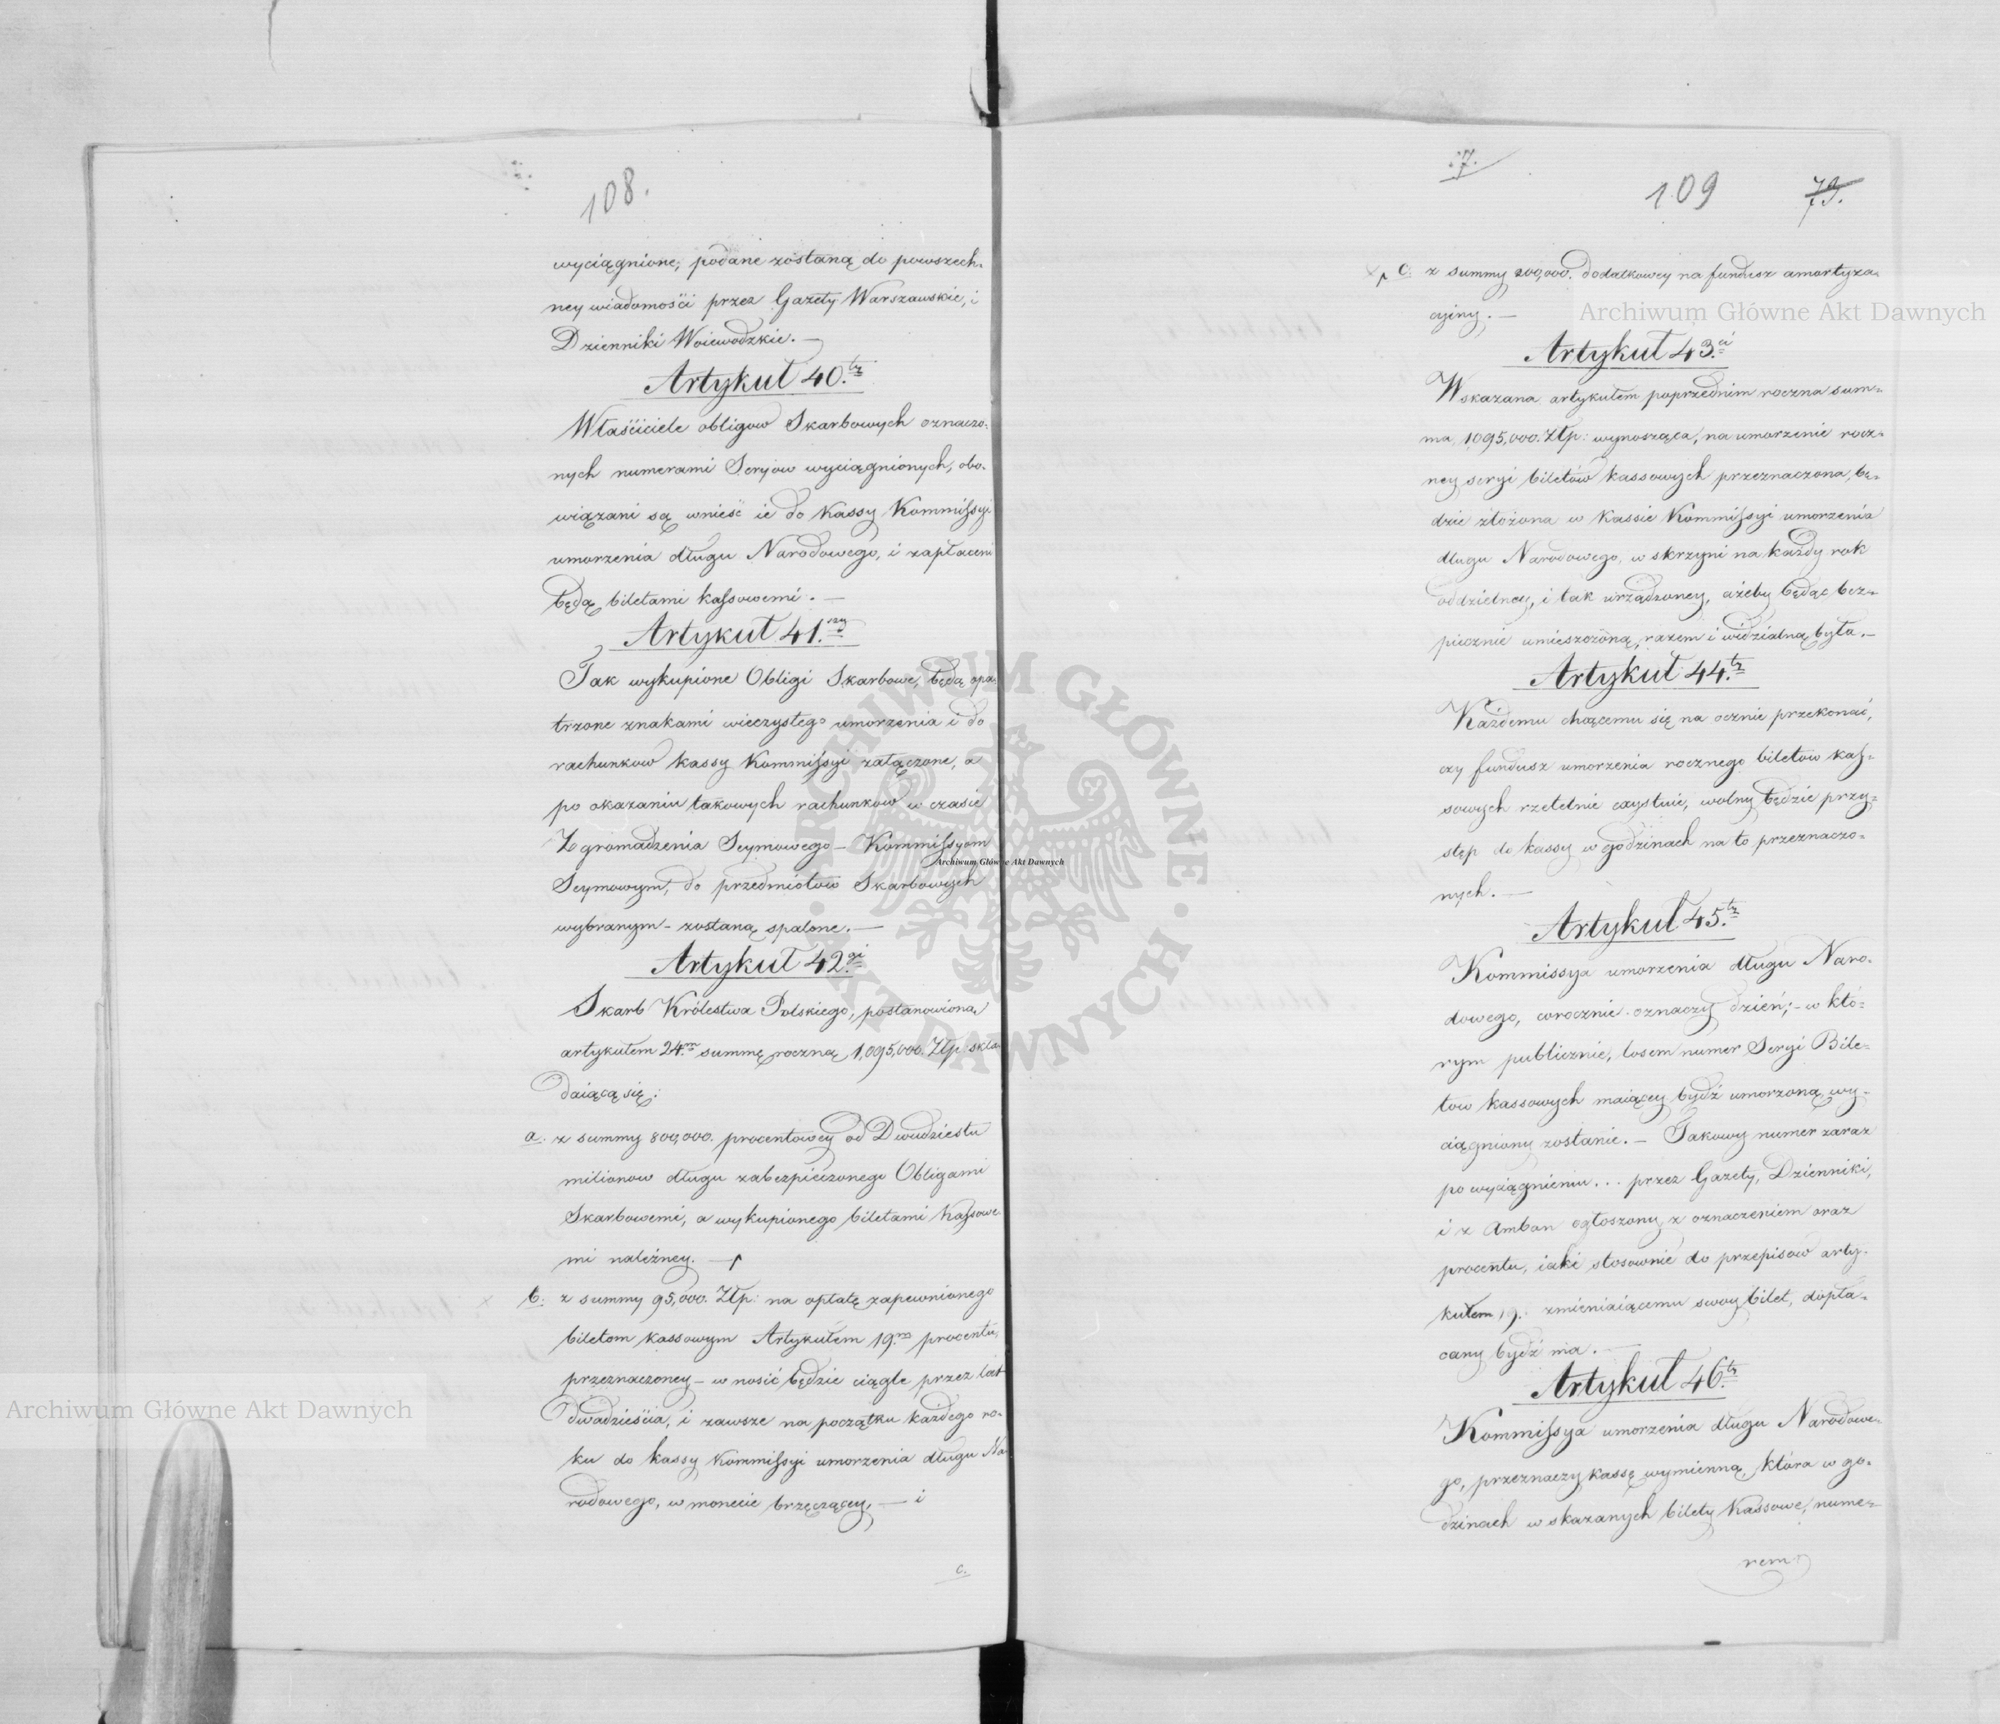 108.
wyciągnione, podane zostaną do powszech-
ney wiadomości przez Gazety Warszawskie, i
Dzienniki Woiewodzkie. —
Artykuł 40.ty
Właściciele obligow Skarbowych oznaczo-
nych numerami Seryow wyciągnionych, obo-
wiązani są wnieść ie do Kassy Kommissyi
umorzenia długu Narodowego, i zapłaceni
będą biletami kassowemi. —
Artykuł 41.szy
Tak wykupione Obligi Skarbowe, będą opa-
trzone znakami wieczystego umorzenia i do
rachunkow kassy Kommissyi załączone, a
po okazaniu takowych rachunkow w czasie
Zgromadzenia Seymowego — Kommissyom
Seymowym, do przedmiotow Skarbowych
wybranym — zostaną spalone. —
Artykuł 42.gi
Skarb Królestwa Polskiego, postanowioną
artykułem 24.m summę roczną 1,095,000. Złp. skła-
daiącą się:
a. z summy 800,000. procentowey od Dwudziestu
milionow długu zabezpieczonego Obligami
Skarbowemi, a wykupionego biletami Kassowe-
mi należney. —
b. z summy 95,000. Złp: na opłatę zapewnionego
biletom kassowym Artykułem 19.m procentu,
przeznaczoney — wnosić będzie ciągle przez lat
dwadzieścia, i zawsze na początku każdego ro-
ku do kassy Kommissyi umorzenia długu Na-
rodowego, w monecie brzęczącey, — i
c.
7.
109
79.
c. z summy 200,000. dodatkowey na fundusz amortyza-
cyiny. —
Artykuł 43.ci
Wskazana artykułem poprzednim roczna sum-
ma, 1095,000. Złp: wynosząca, na umorzenie rocz-
ney seryi biletów kassowych przeznaczona, bę-
dzie złożona w Kassie Kommissyi umorzenia
długu Narodowego, w skrzyni na każdy rok
oddzielney, i tak urządzoney, ażeby będąc bez-
piecznie umieszczoną, razem i widzialną była. —
Artykuł 44.ty
Każdemu chcącemu się na ocznie przekonać,
czy fundusz umorzenia rocznego biletow kas-
sowych rzetelnie exystuie, wolny będzie przy-
stęp do kassy w godzinach na to przeznaczo-
nych. —
Artykuł 45.ty
Kommissya umorzenia długu Naro-
dowego, corocznie oznaczy dzień; — w któ-
rym publicznie, losem numer Seryi Bile-
tow kassowych maiącey bydź umorzoną, wy-
ciągniony zostanie. — Takowy numer zaraz
po wyciągnieniu ... przez Gazety, Dzienniki,
i z Ambon ogłoszony z oznaczeniem oraz
procentu, iaki stosownie do przepisow arty-
kułem 19. zmieniaiącemu swoy bilet, dopła-
cany bydź ma. —
Artykuł 46.ty
Kommissya umorzenia długu Narodowe-
go, przeznaczy kassę wymienną, która w go-
dzinach wskazanych bilety Kassowe, nume-
rem
Archiwum Główne Akt Dawnych
Archiwum Główne Akt Dawnych
Archiwum Główne Akt Dawnych
ARCHIWUM GŁÓWNE
AKT DAWNYCH